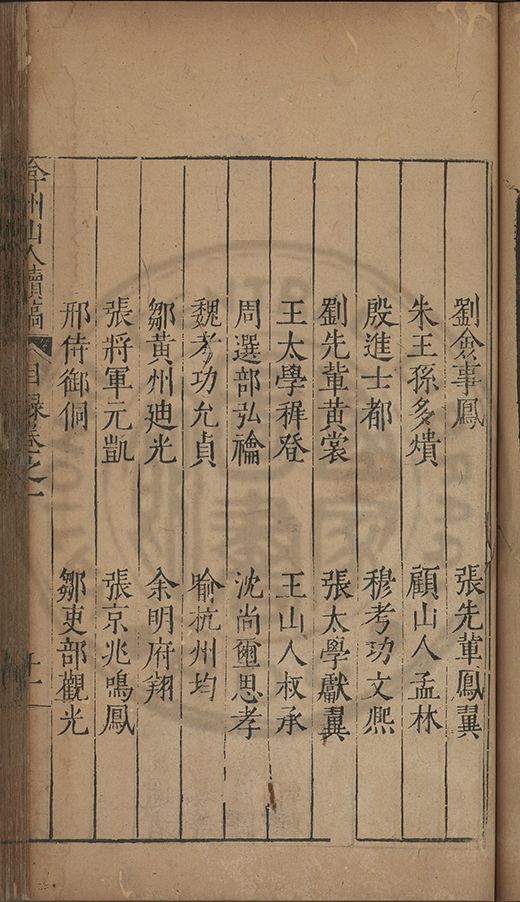 劉僉事鳳　張先輩鳳翼
朱王孫多熿　顧山人孟林
殷進士都　穆考功文熈
劉先輩黃裳　張太學獻翼
王太學穉登　王山人叔承
周選部弘禴　沈尚璽思孝
魏考功允貞　喻杭州均
鄒黃州廸光　余明府翔
張將軍元凱　張京兆鳴鳳
邢侍御侗　鄒吏部觀光
弇州山人續稿　目録卷之一　十一